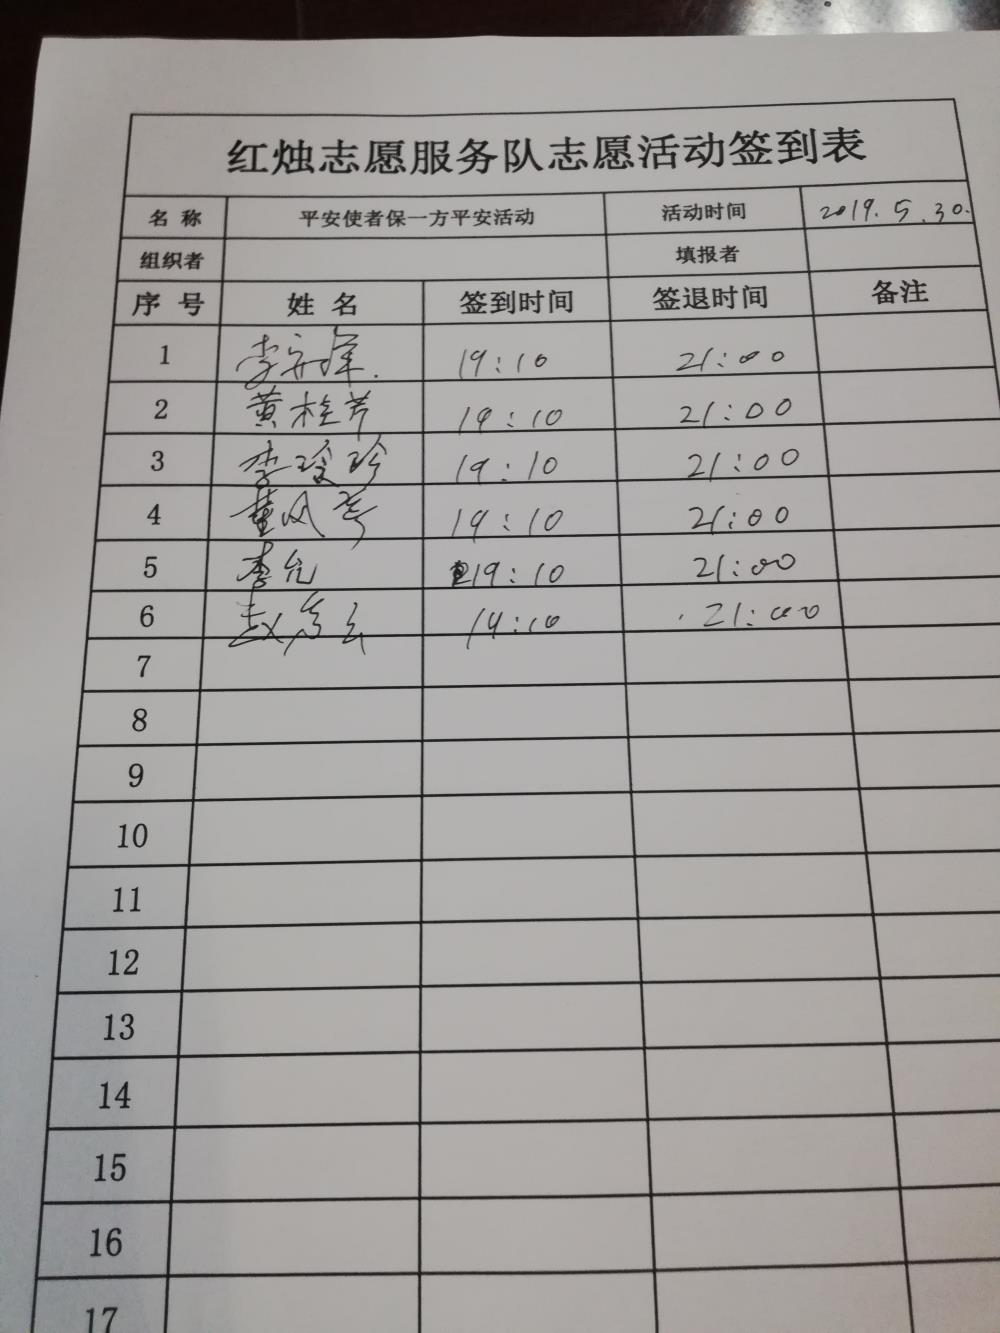 红烛志愿服务队志愿活动签到表
名 称 平安使者保一方平安活动 活动时间 2019.5.30.
组织者 填报者
序 号 姓 名 签到时间 签退时间 备注
1 李 19:10 21:00
2 黄桂芹 19:10 21:00
3 李玲 19:10 21:00
4 董风 19:10 21:00
5 李允 19:10 21:00
6 赵 19:10 21:00
7
8
9
10
11
12
13
14
15
16
17